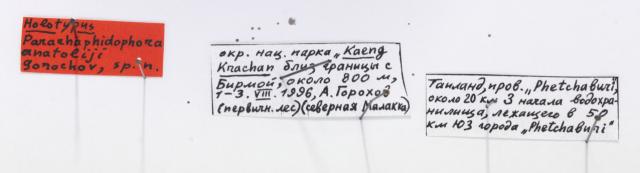 Holotypus
Pararhaphidophora
anatoliji
Gorochov, sp. n.
окр. нац. парка „Kaeng
Krachan близ границы с
Бирмой, около 800 м,
1-3. VIII. 1996, А. Горохов
(первичн. лес) (северная Малакка)
Таиланд, пров. „Phetchaburi",
около 20 км З начала водохра-
нилища, лежащего в 50
км ЮЗ города „Phetchaburi"